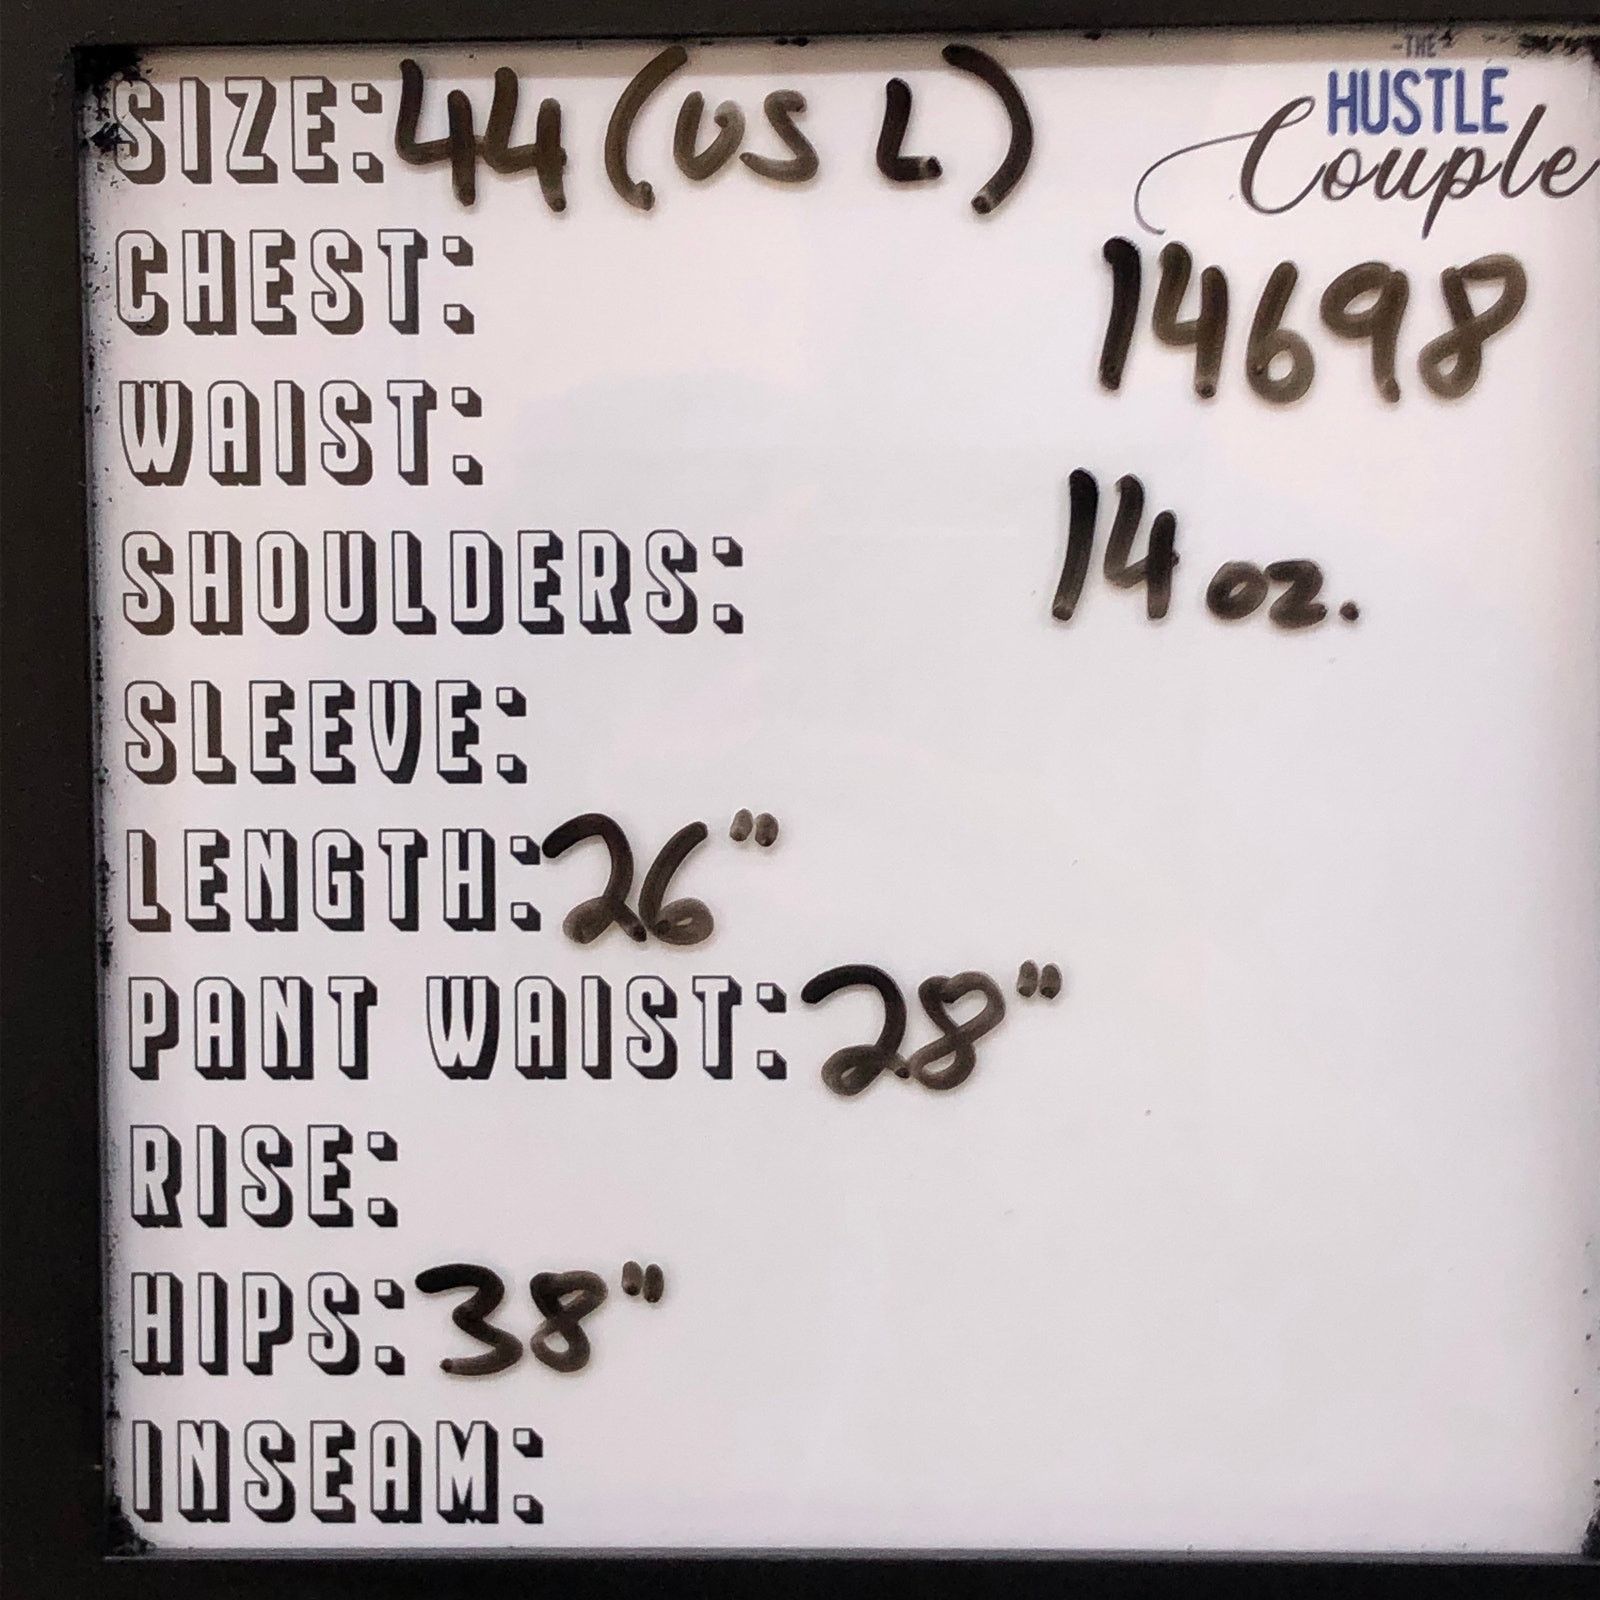 -THE-
HUSTLE
Couple
SIZE: 44 (US L)
CHEST:
14698
WAIST:
SHOULDERS:
14 oz.
SLEEVE:
LENGTH: 26"
PANT WAIST: 28"
RISE:
HIPS: 38"
INSEAM: